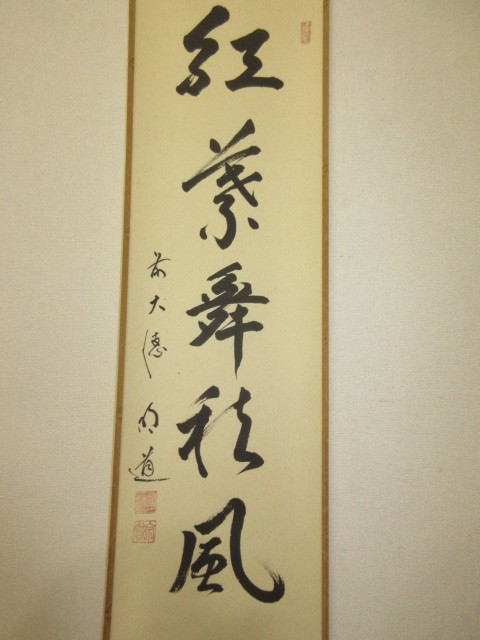 紅葉舞秋風
前大徳 明道